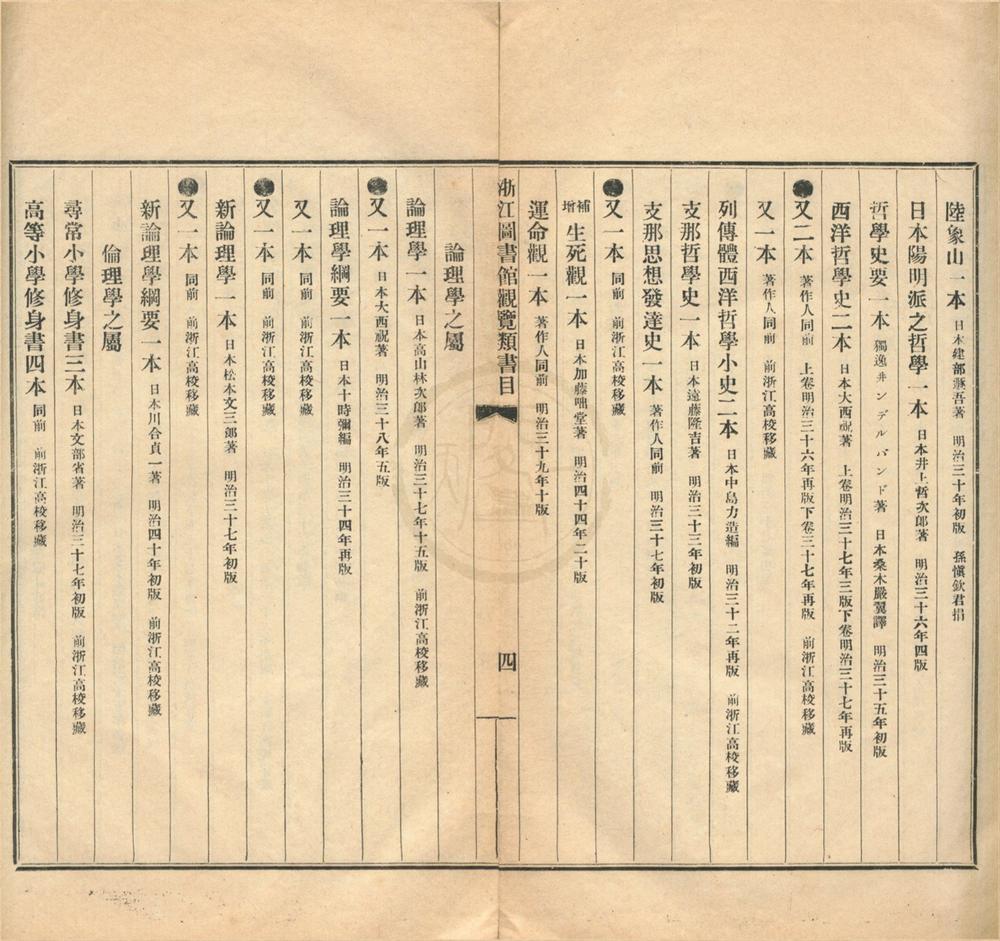 陸象山一本 日本建部遯吾著 明治三十年初版 孫愼欽君捐
日本陽明派之哲學一本 日本井上哲次郎著 明治三十六年四版
哲學史要一本 獨逸井ンデルバンド著 日本桑木嚴翼譯 明治三十五年初版
西洋哲學史二本 日本大西祝著 上卷明治三十七年三版下卷明治三十七年再版
又二本 著作人同前 上卷明治三十六年再版下卷三十七年再版 前浙江高校移藏
又一本 著作人同前 前浙江高校移藏
列傳體西洋哲學小史二本 日本中島力造編 明治三十二年再版 前浙江高校移藏
支那哲學史一本 日本遠藤隆吉著 明治三十三年初版
支那思想發達史一本 著作人同前 明治三十七年初版
又一本 同前 前浙江高校移藏
補增 生死觀一本 日本加藤咄堂著 明治四十四年二十版
運命觀一本 著作人同前 明治三十九年十版
浙江圖書館觀覽類書目 四
論理學之屬
論理學一本 日本高山林次郎著 明治三十七年十五版 前浙江高校移藏
又一本 日本大西祝著 明治三十八年五版
論理學綱要一本 日本十時彌編 明治三十四年再版
又一本 同前 前浙江高校移藏
又一本 同前 前浙江高校移藏
新論理學一本 日本松本文三郎著 明治三十七年初版
又一本 同前 前浙江高校移藏
新論理學綱要一本 日本川合貞一著 明治四十年初版 前浙江高校移藏
倫理學之屬
尋常小學修身書三本 日本文部省著 明治三十七年初版 前浙江高校移藏
高等小學修身書四本 同前 前浙江高校移藏